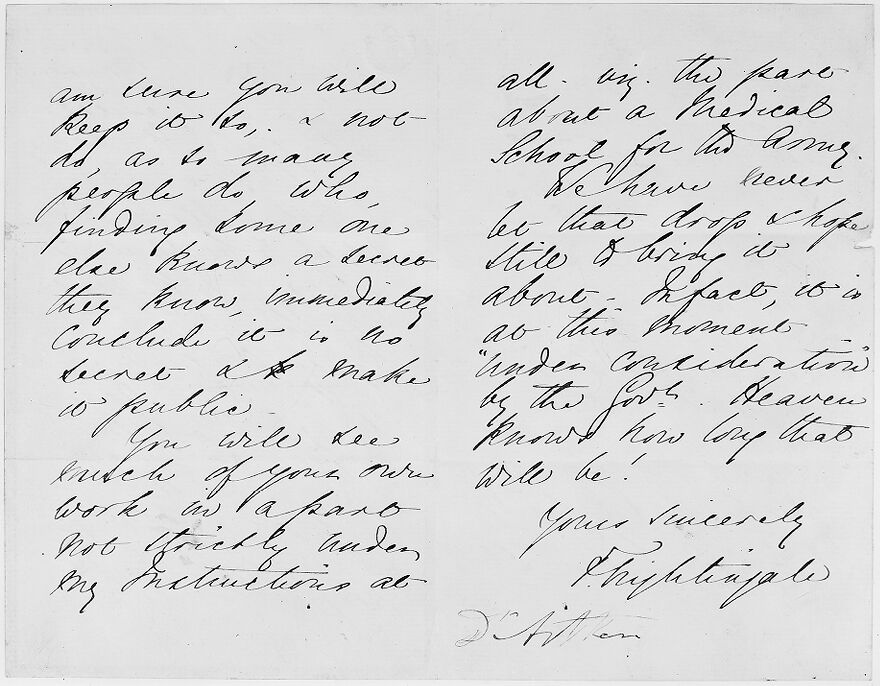 am sure you will
keep it so, & not
do, as so many
people do, who,
finding some one
else knows a secret
they know, immediately
conclude it is no
secret & make
it public -
You will see
much of your own
work in a part
not strictly under
my Instructions at
all - viz. the part
about a Medical
School for the Army.
We have never
let that drop & hope
still to bring it
about - In fact, it is
at this moment
"under consideration"
by the Govt. Heaven
knows how long that
will be!
Yours sincerely
F. Nightingale
Dr Aitken